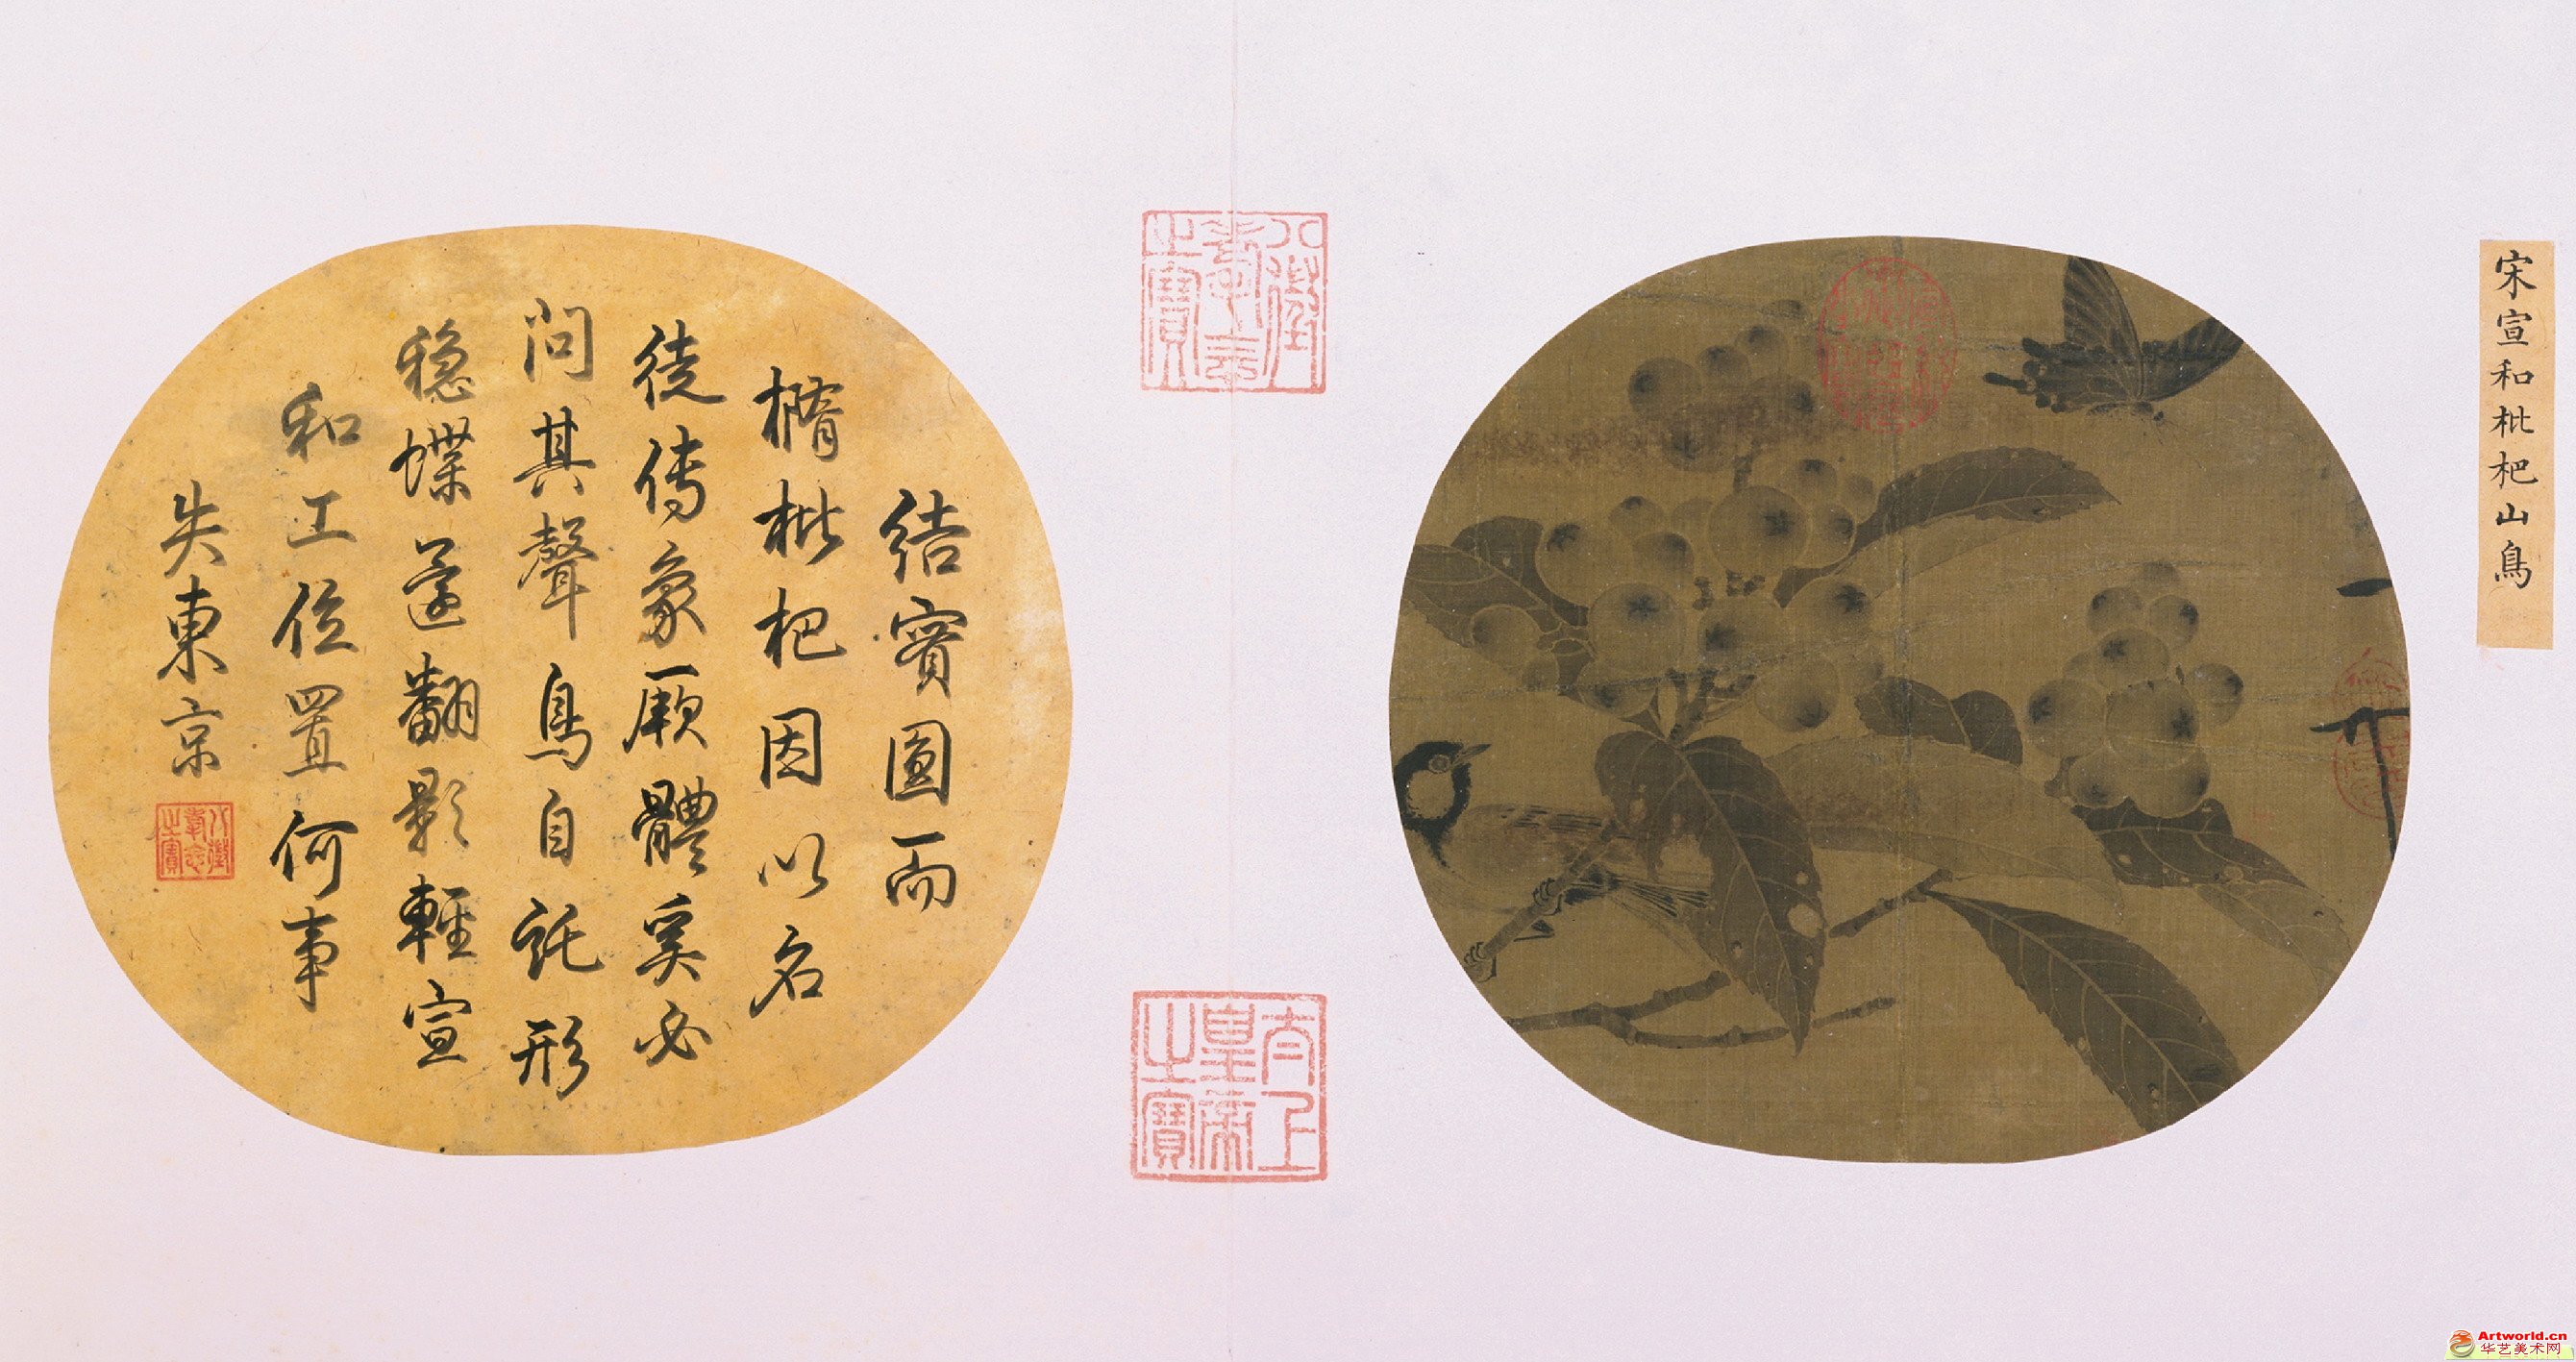 宋宣和枇杷山鳥
八徵
耄念
之寶
太上
皇帝
之寶
結實圓而
橢枇杷因以名
徒傳象厥體奚必
問其聲鳥自託形
穩蝶還翻影輕宣
和工位置何事
失東京
八徵
耄念
之寶
Artworld.cn
华艺美术网